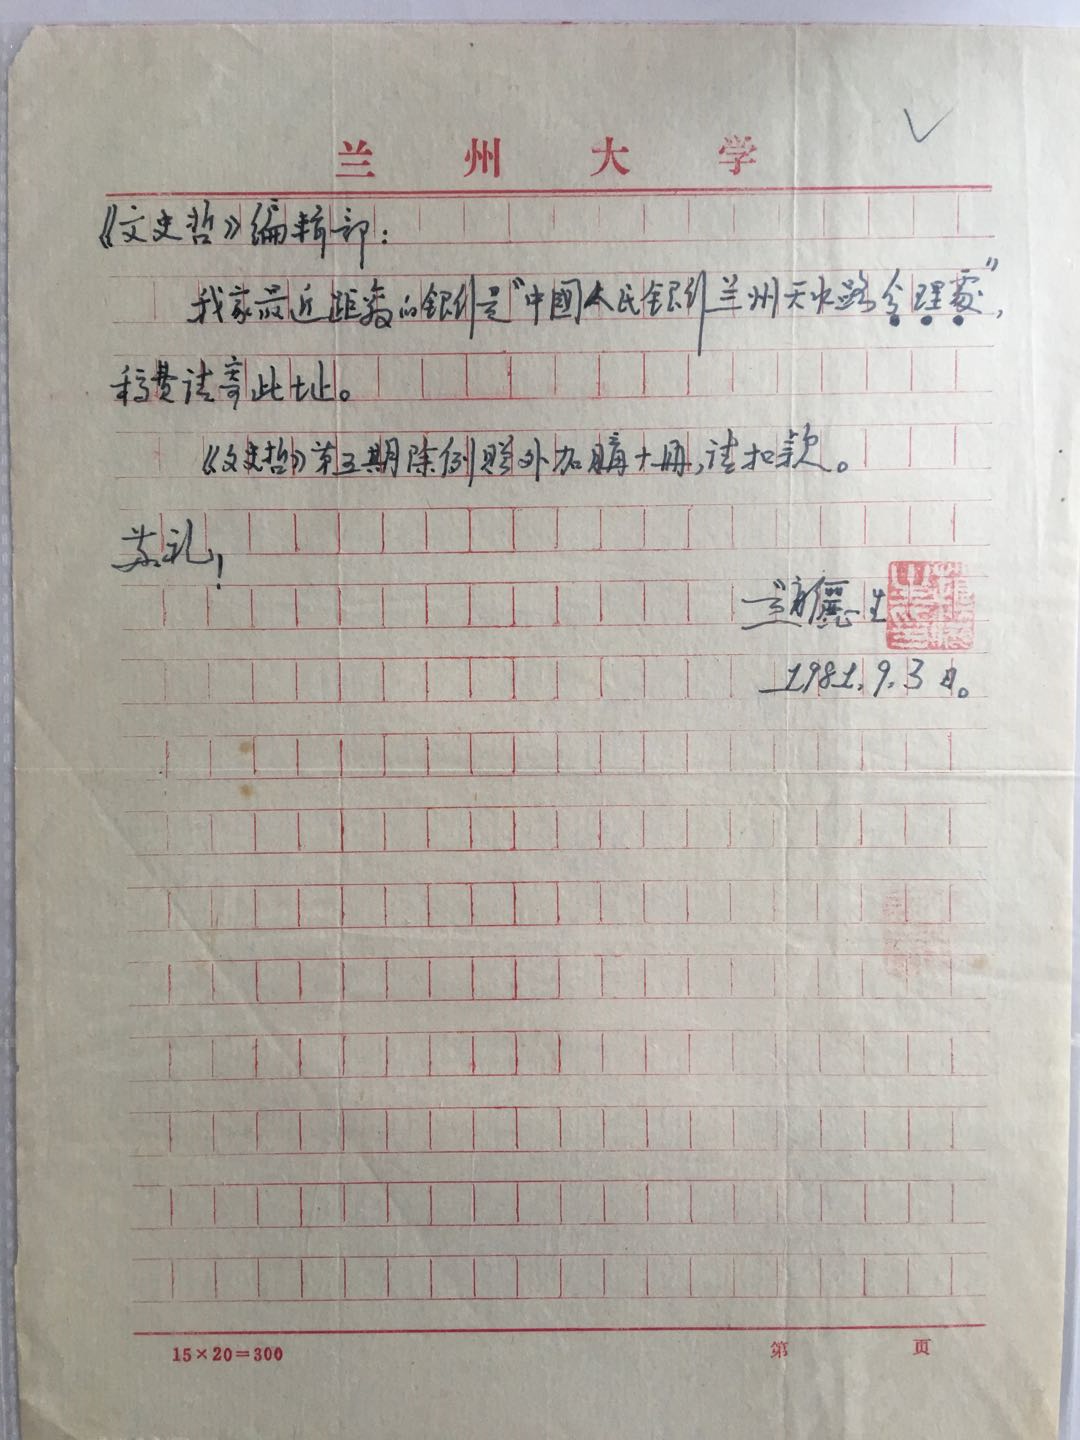 兰州大学
《文史哲》编辑部：
我家最近距离的银行是“中國人民银行兰州天水路分理處”，
稿费请寄此址。
《文史哲》第五期除例赠外加购十册，请扣款。
敬礼！
赵俪生
1981.9.3日。
15×20=300
第 页